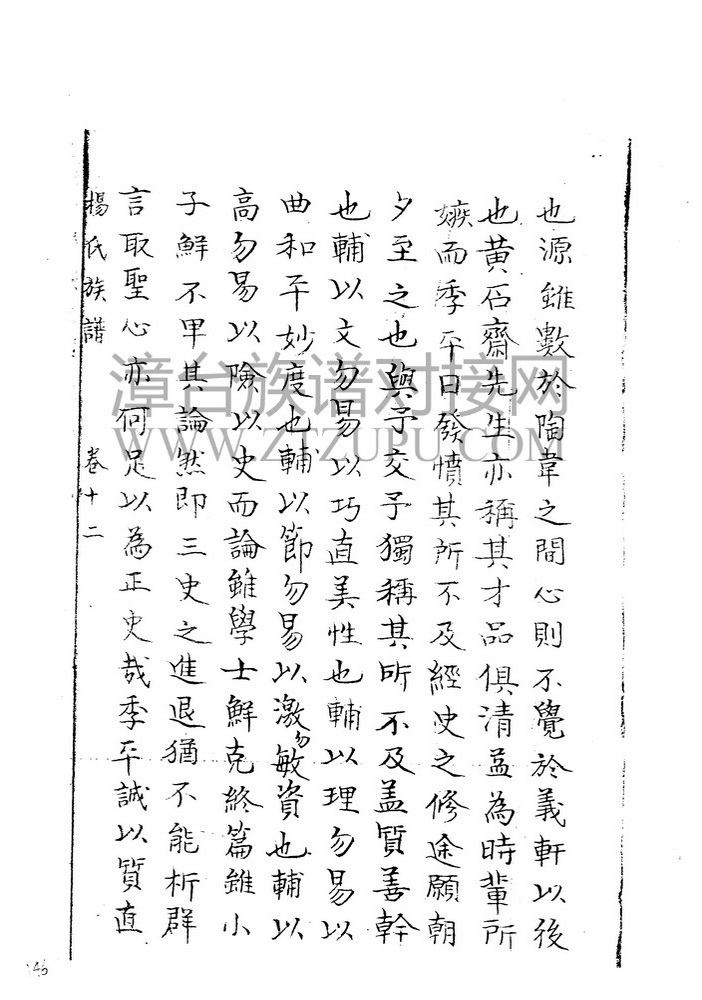 也源雖數於陶韋之間心則不覺於義軒以後
也黄石齋先生亦稱其才品俱清盖為時輩所
嫉而季平日發憤其所不及經史之修途願朝
夕至之也與予交予獨稱其所不及盖質善幹
也輔以文勿易以巧直美性也輔以理勿易以
曲和平妙度也輔以節勿易以激勿敏資也輔以
高勿易以險以史而論雖學士鮮克終篇雖小
子鮮不甲其論然即三史之進退猶不能析群
言取聖心亦何足以為正史哉季平誠以質直
楊氏族譜 卷十二
漳台族谱对接网
WWW.ZTZUPU.COM